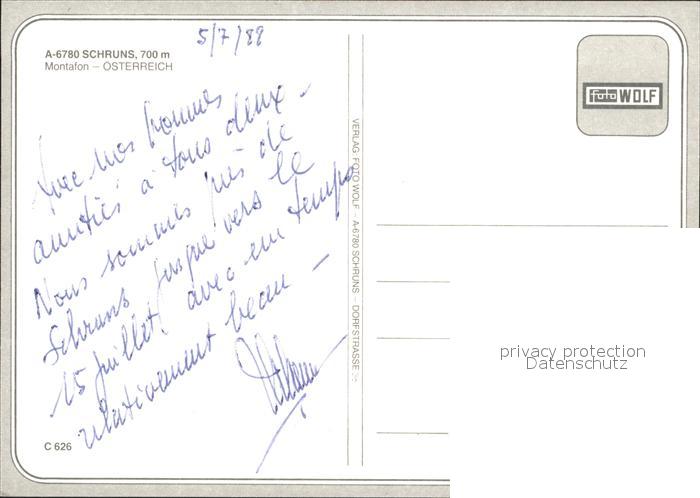 5/7/88
A-6780 SCHRUNS, 700 m
Montafon – ÖSTERREICH
foto WOLF
Avec nos bonnes
amitiés à tous deux -
Nous sommes près de
Schruns jusque vers le
15 juillet, avec un temps
relativement beau -
VERLAG FOTO WOLF – A-6780 SCHRUNS – DORFSTRASSE
C 626
privacy protection
Datenschutz